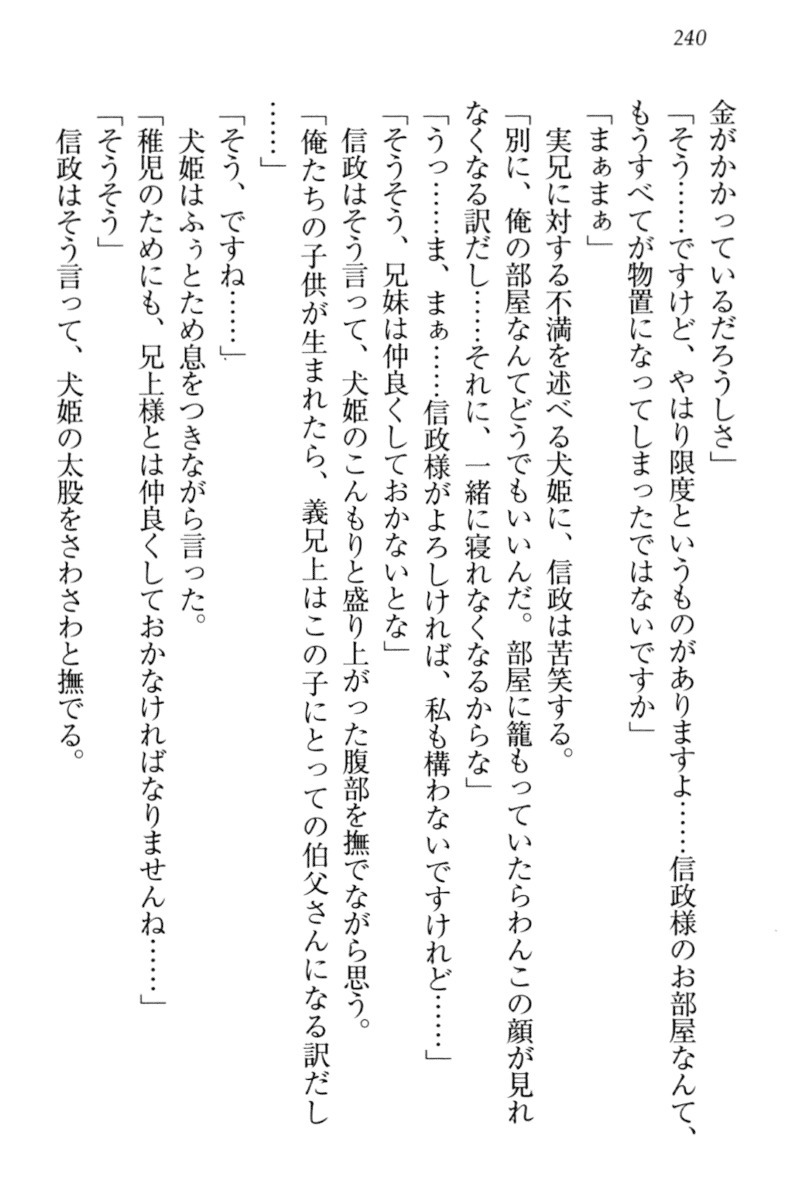 240
金がかかっているだろうしさ」
「そう……ですけど、やはり限度というものがありますよ……信政様のお部屋なんて、
もうすべてが物置になってしまったではないですか」
「まぁまぁ」
実兄に対する不満を述べる犬姫に、信政は苦笑する。
「別に、俺の部屋なんてどうでもいいんだ。部屋に籠もっていたらわんこの顔が見れ
なくなる訳だし……それに、一緒に寝れなくなるからな」
「うっ……ま、まぁ……信政様がよろしければ、私も構わないですけれど……」
「そうそう、兄妹は仲良くしておかないとな」
信政はそう言って、犬姫のこんもりと盛り上がった腹部を撫でながら思う。
「俺たちの子供が生まれたら、義兄上はこの子にとっての伯父さんになる訳だし
……」
「そう、ですね……」
犬姫はふぅとため息をつきながら言った。
「稚児のためにも、兄上様とは仲良くしておかなければなりませんね……」
「そうそう」
信政はそう言って、犬姫の太股をさわさわと撫でる。